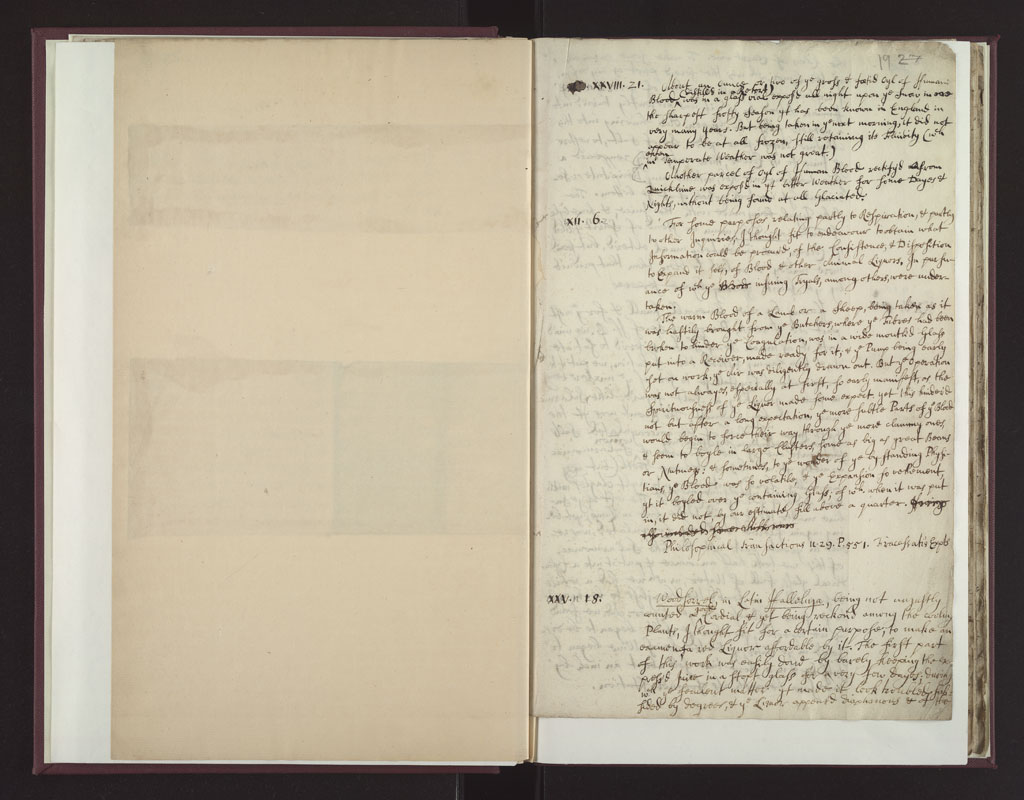 19 27
XXVIII. 21. About an ounce or two of ye gross & foetid Oyl of Human
(distilld in a Retort)
Blood was in a glass vial expos'd all night upon ye Snow in one
the sharpest frosty season yt has been known in England in
very many years. But being taken in ye next morning, it did not
appear to be at all frozen, still retaining its fluidity (wch
in temperate Weather was not great.)
Another parcel of Oyl of Human Blood rectify'd from
Quicklime, was expos'd in yt bitter Weather for some Dayes &
Nights, without being found at all Glaciated.
XII. 6. For some purposes relating partly to Respiration, & partly
to other Inquiries, I thought fit to endeavour to obtain what
Information could be procured, of the Consistence, & Disposition
to Expand it self, of Blood & other Animal Liquors, In pursu-
ance of wch ye insuing Tryals, among others, were under-
taken.
The warm Blood of a Lamb or a Sheep, being taken as it
was hastily brought from ye Butchers, where ye Fibres had been
broken to hinder ye Coagulation, was in a wide mouthed Glass
put into a Receiver, made ready for it, & ye Pump being early
set on work, ye Air was diligently drawn out. But ye Operation
was not always, especially at first, so early manifest, as the
spirituousness of ye Liquor made some expect yet this hinder'd
not but after a long expectation, ye more subtle Parts of ye Blood
would begin to force their way through ye more clammy ones
& seem to boyle in large Clusters, some as big as great Beans
or Nutmegs: & sometimes, to ye wonder of ye by standing Physi-
tians, ye Blood was so volatile, & ye Expansion so vehement,
yt it boyled over ye containing Glass; of wch when it was put
in, it did not by our estimate fill above a quarter.
Philosophical Transactions n. 29. P. 551.
XXV. 18. Woodsorrel, in Latin Halleluja, being not unjustly
counted a Cordial & yet being reckon'd among the cooling
Plants, I thought fit for a certain purpose, to make an
examen of ye Liquors affordable by it. The first part
of this work was easily done by barely keeping the ex-
press'd juice in a stopt glass for a very few dayes, during
wch ye feculent matter yt made it look troubled, subsi-
ded by degrees, & ye Liquor appear'd diaphanous & of